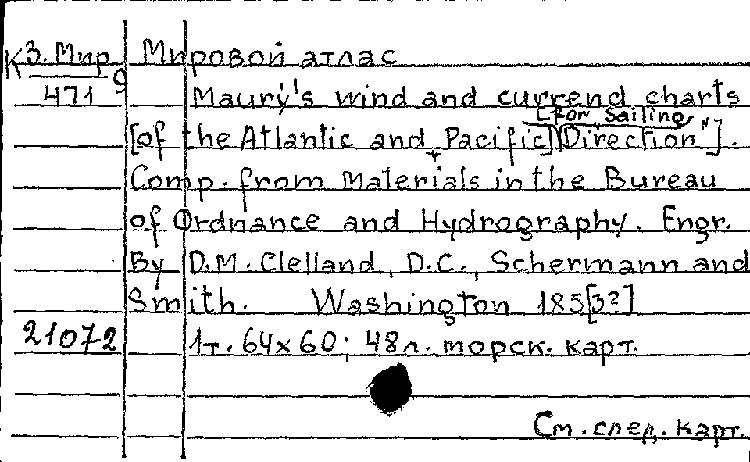 К 3. Мир 9 Мировой атлас
471 Maury's wind and currend charts
[for Sailing
[of the Atlantic and Pacific] Direction"].
Comp. from Materials in the Bureau
of Ordnance and Hydrography. Engr.
By D.M. Clelland, D.C., Schermann and
Smith. Washington 185[3?]
21072 1т. 64х60; 48л. морск. карт.
См. след. карт.